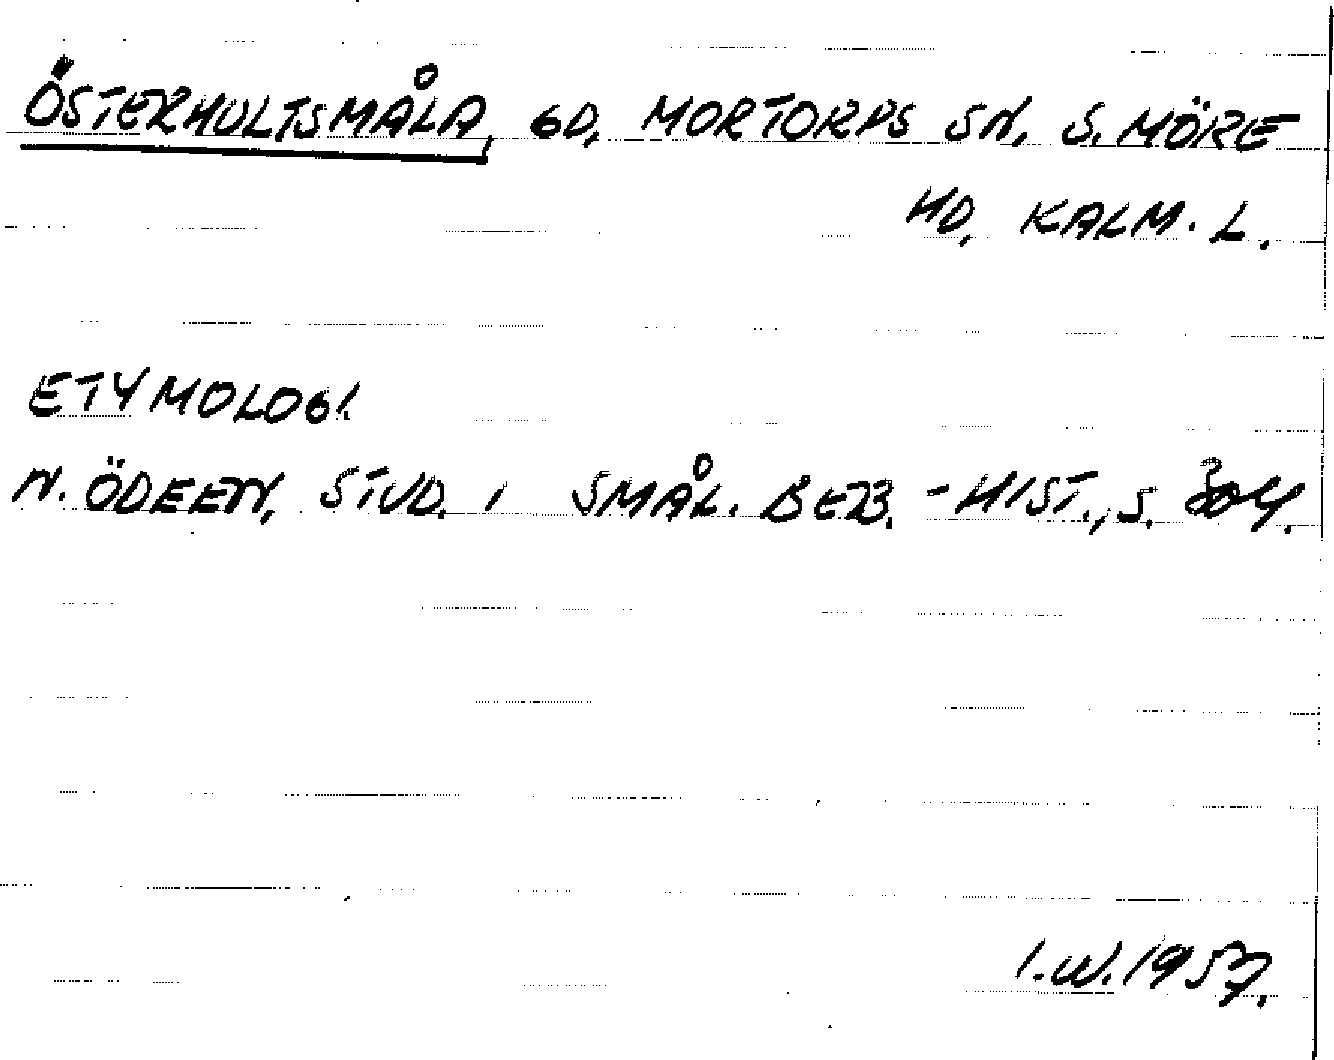 ÖSTERHULTSMÅLA, GD, MORTORPS SN, S. MÖRE
HD, KALM. L.
ETYMOLOGI.
N. ÖDEEN, STUD. I SMÅL. BEB. -HIST., S. 304.
I.W. 1957.